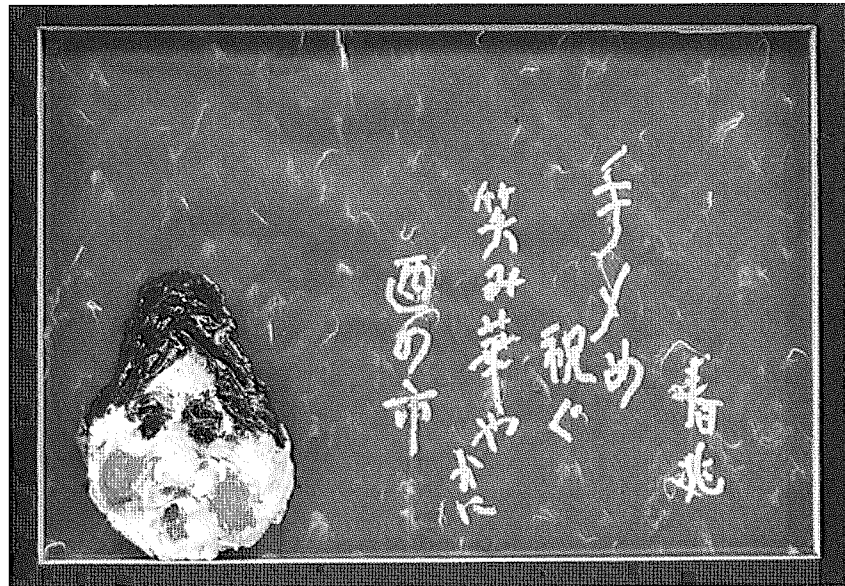 手〆め
祝ぐ
笑み華や
かに
酉の市